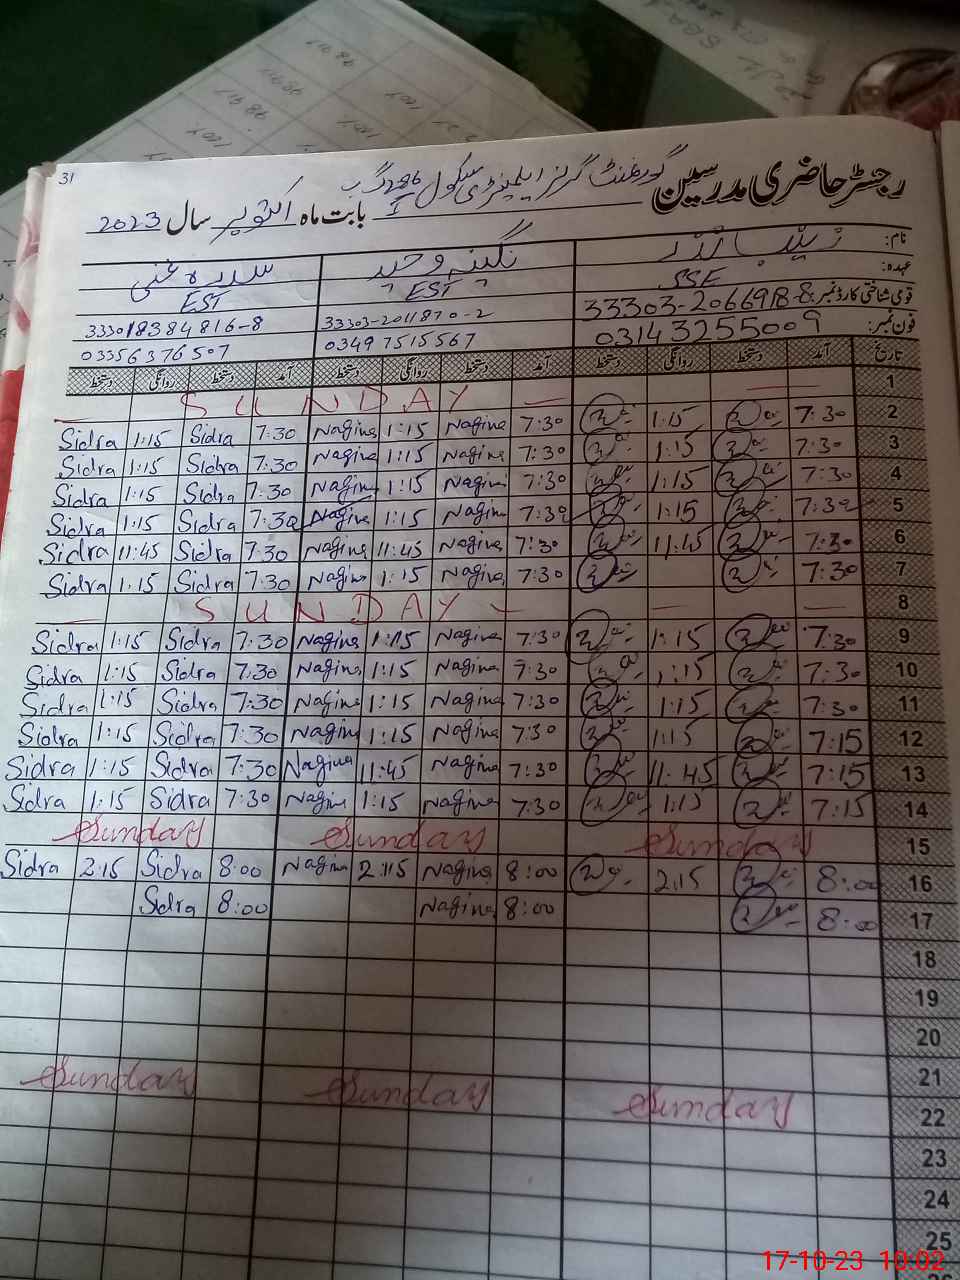 31
رجسٹر حاضری مدرسین گورنمنٹ گرلز ایلیمنٹری سکول 296 گ ب
بابت ماہ اکتوبر سال 2023
نام: زیب النساء نگینہ وحید سدرہ غنی
عہدہ: SSE EST EST
قومی شناختی کارڈ نمبر: 33303-2066918-8 33303-2011870-2 333018384816-8
فون نمبر: 03143255009 03497515567 03356376507
تاریخ آمد دستخط روانگی دستخط آمد دستخط روانگی دستخط آمد دستخط روانگی دستخط
SUNDAY 1
Sidra 1:15 Sidra 7:30 Nagina 1:15 Nagina 7:30 1:15 7:30 2
Sidra 1:15 Sidra 7:30 Nagina 1:15 Nagina 7:30 1:15 7:30 3
Sidra 1:15 Sidra 7:30 Nagina 1:15 Nagina 7:30 1:15 7:30 4
Sidra 1:15 Sidra 7:30 Nagina 1:15 Nagina 7:30 1:15 7:30 5
Sidra 11:45 Sidra 7:30 Nagina 11:45 Nagina 7:30 11:45 7:30 6
Sidra 1:15 Sidra 7:30 Nagina 1:15 Nagina 7:30 7:30 7
SUNDAY 8
Sidra 1:15 Sidra 7:30 Nagina 1:15 Nagina 7:30 1:15 7:30 9
Sidra 1:15 Sidra 7:30 Nagina 1:15 Nagina 7:30 1:15 7:30 10
Sidra 1:15 Sidra 7:30 Nagina 1:15 Nagina 7:30 1:15 7:30 11
Sidra 1:15 Sidra 7:30 Nagina 1:15 Nagina 7:30 1:15 7:15 12
Sidra 1:15 Sidra 7:30 Nagina 11:45 Nagina 7:30 11:45 7:15 13
Sidra 1:15 Sidra 7:30 Nagina 1:15 Nagina 7:30 1:15 7:15 14
Sunday Sunday Sunday 15
Sidra 2:15 Sidra 8:00 Nagina 2:15 Nagina 8:00 2:15 8:00 16
Sidra 8:00 Nagina 8:00 8:00 17
18
19
20
21
Sunday Sunday Sunday 22
23
24
25
17-10-23 10:02